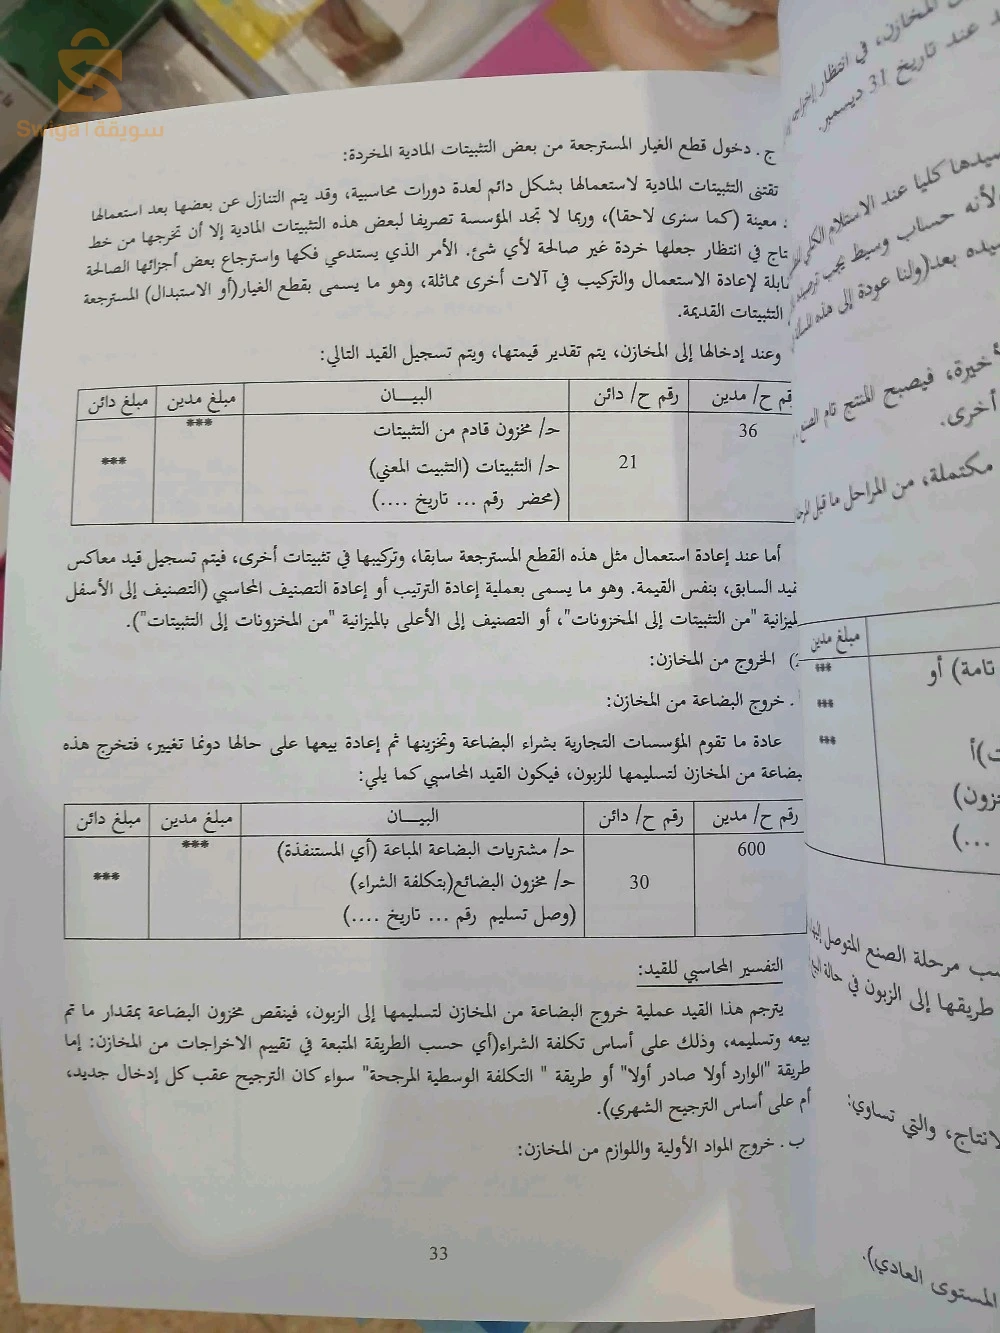 سويقة | Swiga
ج . دخول قطع الغيار المسترجعة من بعض التثبيتات المادية المخردة:
تقتنى التثبيتات المادية لاستعمالها بشكل دائم لعدة دورات محاسبية، وقد يتم التنازل عن بعضها بعد استعمالها
معينة (كما سنرى لاحقا)، وربما لا تجد المؤسسة تصريفا لبعض هذه التثبيتات المادية إلا أن تخرجها من خط
في انتظار جعلها خردة غير صالحة لأي شئ. الأمر الذي يستدعي فكها واسترجاع بعض أجزائها الصالحة
لإعادة الاستعمال والتركيب في آلات أخرى مماثلة، وهو ما يسمى بقطع الغيار(أو الاستبدال) المسترجعة
التثبيتات القديمة.
وعند إدخالها إلى المخازن، يتم تقدير قيمتها، ويتم تسجيل القيد التالي:
رقم ح/ مدين رقم ح/ دائن البيـــان مبلغ مدين مبلغ دائن
36 حـ/ مخزون قادم من التثبيتات ***
21 حـ/ التثبيتات (التثبيت المعني) ***
(محضر رقم ... تاريخ ....)
أما عند إعادة استعمال مثل هذه القطع المسترجعة سابقا، وتركيبها في تثبيتات أخرى، فيتم تسجيل قيد معاكس
السابق، بنفس القيمة. وهو ما يسمى بعملية إعادة الترتيب أو إعادة التصنيف المحاسبي (التصنيف إلى الأسفل
"من التثبيتات إلى المخزونات"، أو التصنيف إلى الأعلى بالميزانية "من المخزونات إلى التثبيتات").
2) الخروج من المخازن:
. خروج البضاعة من المخازن:
عادة ما تقوم المؤسسات التجارية بشراء البضاعة وتخزينها ثم إعادة بيعها على حالها دونما تغيير، فتخرج هذه
من المخازن لتسليمها للزبون، فيكون القيد المحاسبي كما يلي:
رقم ح/ مدين رقم ح/ دائن البيـــان مبلغ مدين مبلغ دائن
600 حـ/ مشتريات البضاعة المباعة (أي المستنفذة) ***
30 حـ/ مخزون البضائع(بتكلفة الشراء) ***
(وصل تسليم رقم ... تاريخ ....)
التفسير المحاسبي للقيد:
يترجم هذا القيد عملية خروج البضاعة من المخازن لتسليمها إلى الزبون، فينقص مخزون البضاعة بمقدار ما تم
بيعه وتسليمه، وذلك على أساس تكلفة الشراء(أي حسب الطريقة المتبعة في تقييم الاخراجات من المخازن: إما
طريقة "الوارد أولا صادر أولا" أو طريقة " التكلفة الوسطية المرجحة" سواء كان الترجيح عقب كل إدخال جديد،
أم على أساس الترجيح الشهري).
ب . خروج المواد الأولية واللوازم من المخازن:
33
المخازن، في انتظار
عند تاريخ 31 ديسمبر.
كليا عند الاستلام الكلي
لأنه حساب وسيط يجب
بعد(ولنا عودة إلى هذه
فيصبح المنتج تام الصنع
أخرى.
مكتملة، من المراحل ما قبل
مبلغ مدين
تامة) أو ***
***
***
...)
مرحلة الصنع المتوصل إليها
طريقها إلى الزبون في حالة
والتي تساوي:
المستوى العادي).